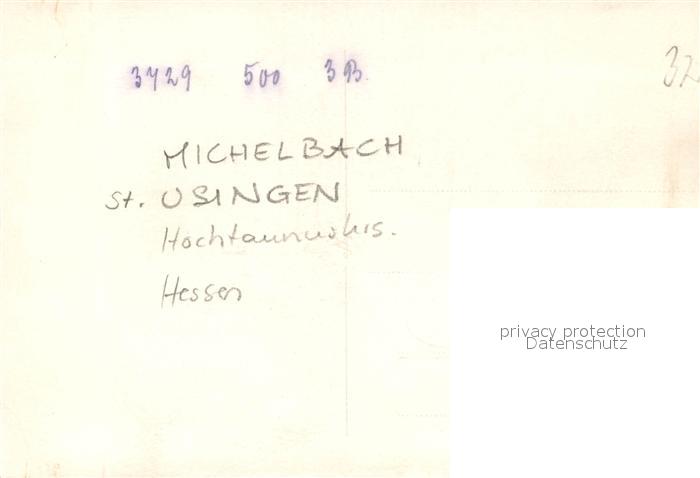 3729 500 3B
32
MICHELBACH
St. USINGEN
Hochtaunuskrs.
Hessen
privacy protection
Datenschutz